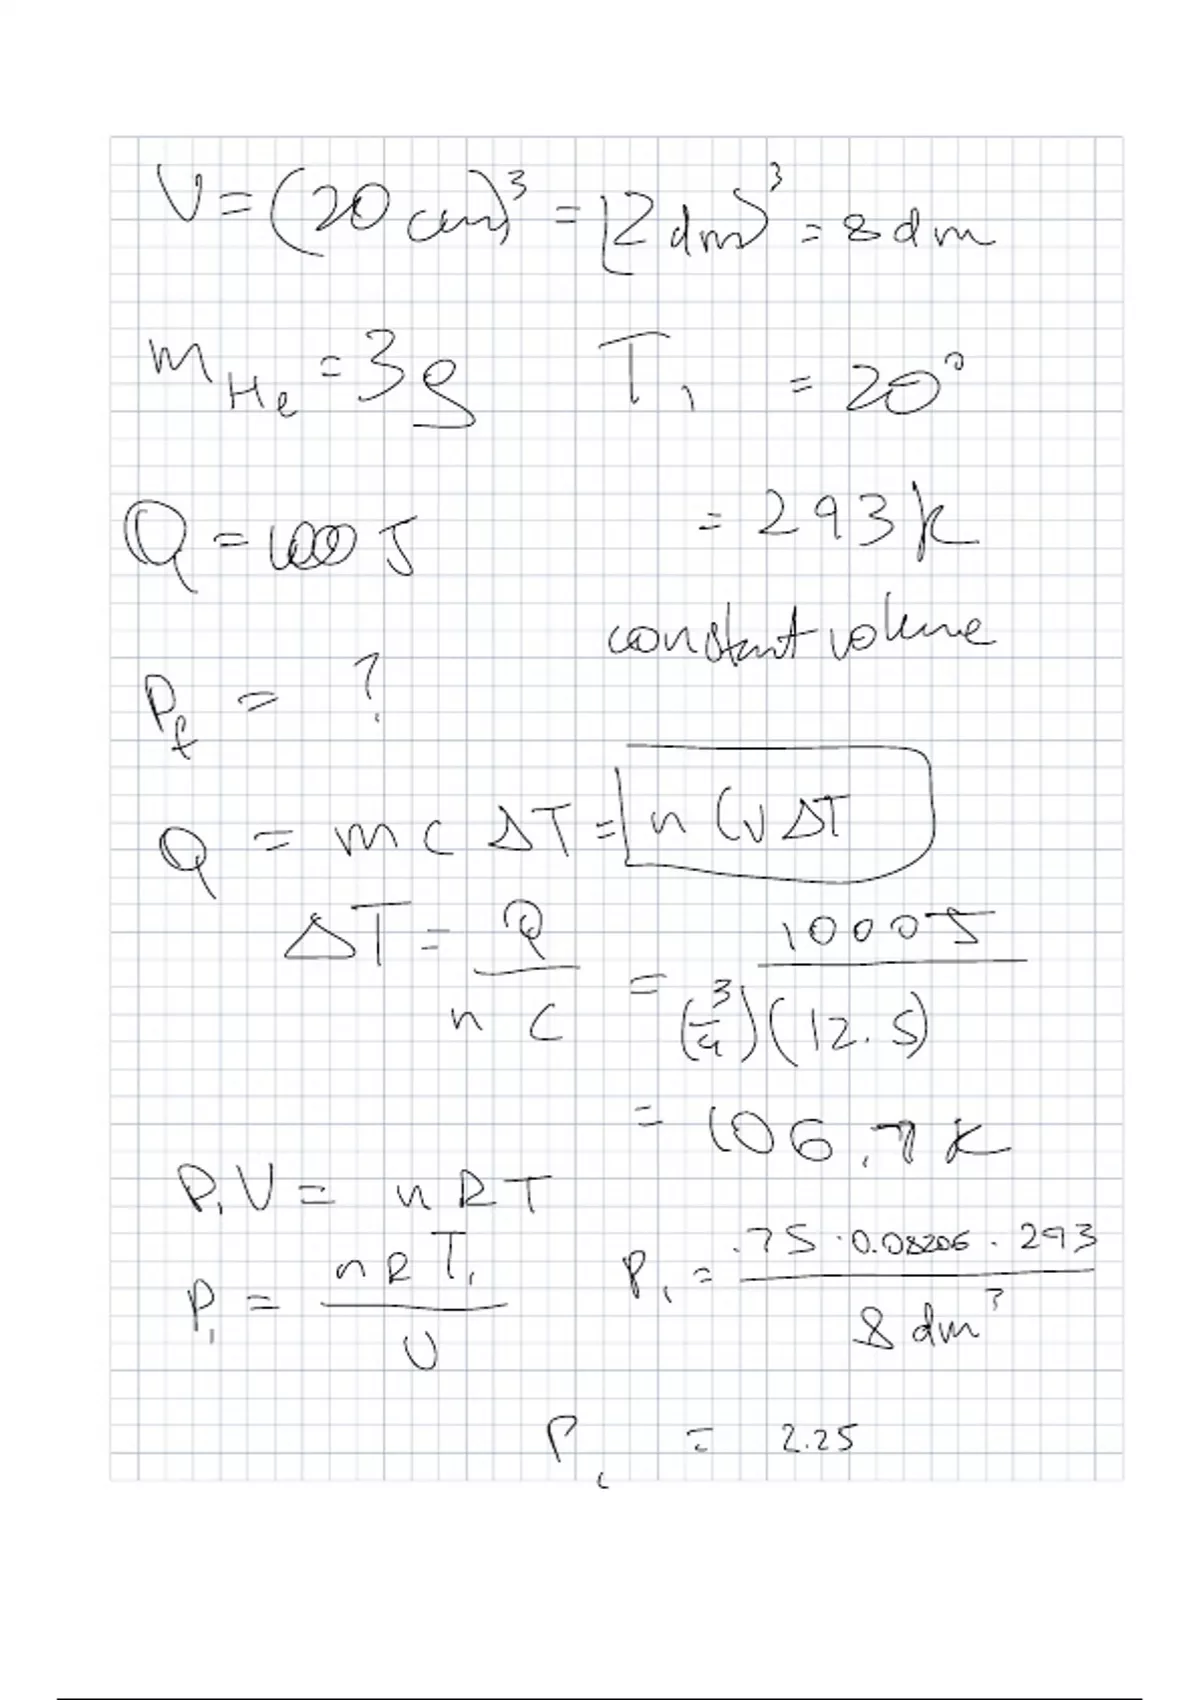 V = (20 cm)³ = (2 dm)³ = 8 dm
m_He = 3g T₁ = 20°
Q = 1000 J = 293 K
constant volume
P_f = ?
Q = m c ΔT = n Cv ΔT
ΔT = Q / n C = 1000 J / (3/4)(12.5)
= 106.7 K
P₁V = n R T
P₁ = n R T₁ / V P₁ = .75 · 0.08206 · 293 / 8 dm³
P₁ = 2.25